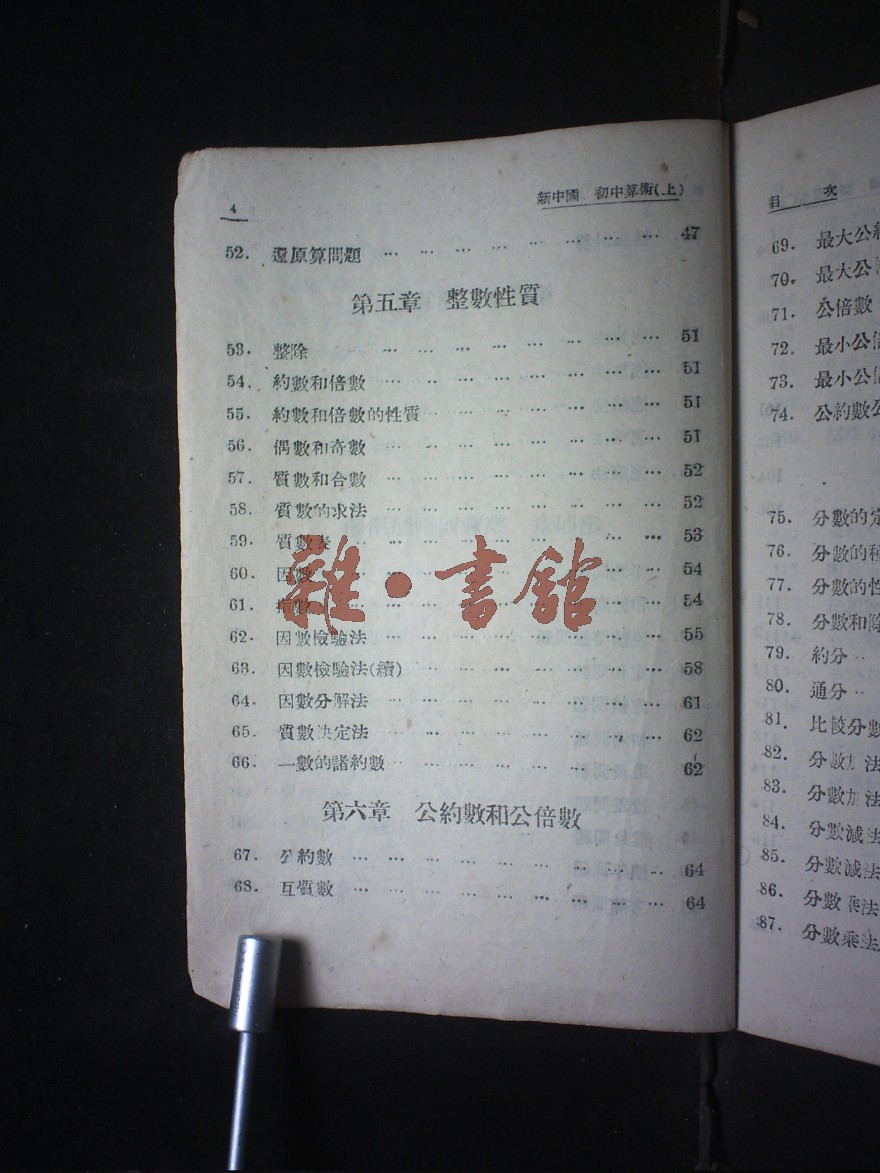 4 新中國 初中算術(上)
52. 還原算問題 … … … … … … … … 47
第五章 整數性質
53. 整除 … … … … … … … … 51
54. 約數和倍數 … … … … … … … … 51
55. 約數和倍數的性質 … … … … … … 51
56. 偶數和奇數 … … … … … … … … 51
57. 質數和合數 … … … … … … … … 52
58. 質數的求法 … … … … … … … … 52
59. 質數表 … … … … … … … … 53
60. 因數 … … … … … … … … 54
61. 指數 … … … … … … … … 54
62. 因數檢驗法 … … … … … … … … 55
63. 因數檢驗法(續) … … … … … … … 58
64. 因數分解法 … … … … … … … … 61
65. 質數決定法 … … … … … … … … 62
66. 一數的諸約數 … … … … … … 62
第六章 公約數和公倍數
67. 公約數 … … … … … … … … … 64
68. 互質數 … … … … … … … … … 64
雜·書館
目 次
69. 最大公約
70. 最大公
71. 公倍數
72. 最小公倍
73. 最小公倍
74. 公約數公
75. 分數的定
76. 分數的種
77. 分數的性
78. 分數和除
79. 約分 …
80. 通分 …
81. 比較分數
82. 分數加法
83. 分數加法
84. 分數減法
85. 分數減法
86. 分數乘法
87. 分數乘法